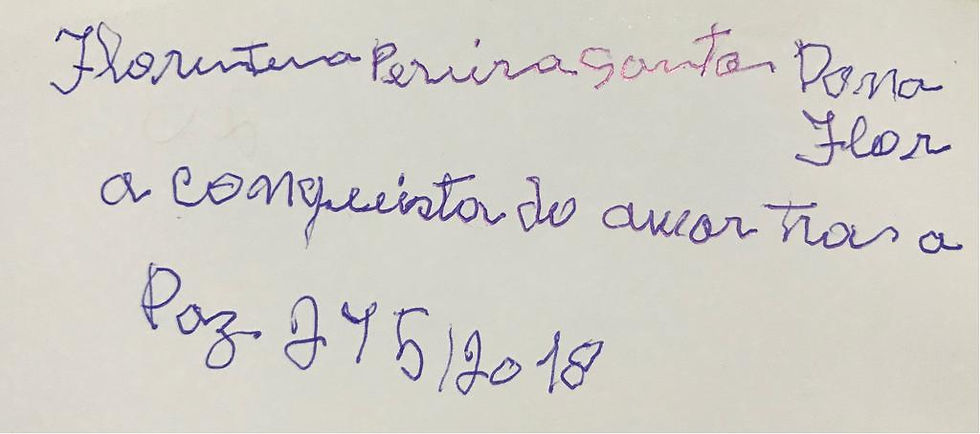 Florentina Pereira Santos Dona
Flor
a conquista do amor tras a
Paz